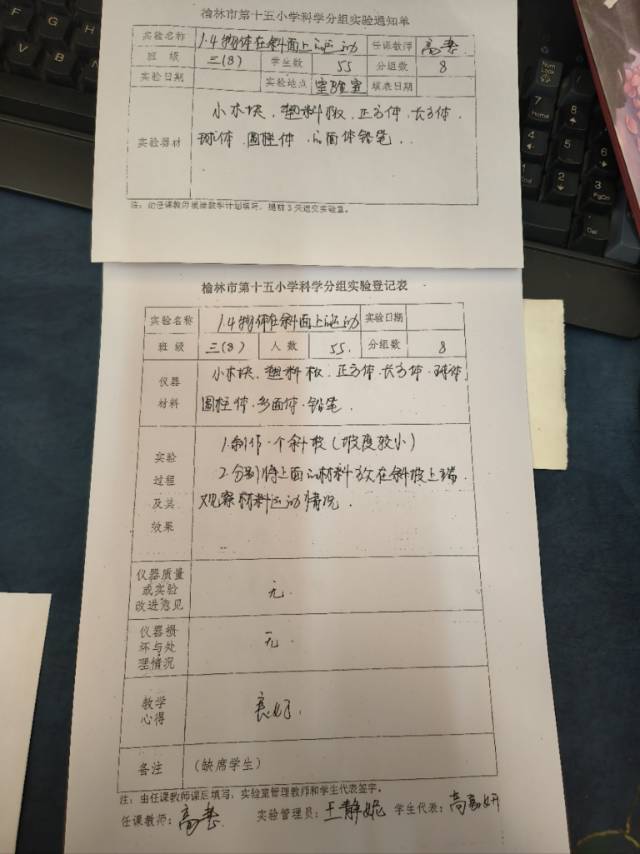 榆林市第十五小学科学分组实验通知单
实验名称 1.4物体在斜面上运动 任课教师
班级 三(8) 学生数 55 分组数 8
实验日期 实验地点 实验室 填表日期
实验器材 小木块、塑料板、正方体、长方体、
球体、圆柱体、 面体铅笔.
注:由任课教师根据教学计划填写,提前3天送交实验室。
榆林市第十五小学科学分组实验登记表
实验名称 1.4物体在斜面上运动 实验日期
班级 三(8) 人数 55. 分组数 8
仪器材料 小木块、塑料板、正方体、长方体、球体,
圆柱体、多面体、铅笔.
实验过程及其效果 1.制作一个斜坡(坡度较小)
2.分别将上面的材料放在斜坡上端,
观察材料运动情况.
仪器质量或实验改进意见 无.
仪器损坏与处理情况 无.
教学心得 良好.
备注 (缺席学生)
注:由任课教师课后填写,实验室管理教师和学生代表签字。
任课教师: 实验管理员:王静妮 学生代表:
Num Lock
7 Home
8
9 PgUp
4
5
6
2
3 PgDn
Del
V
B
N
F